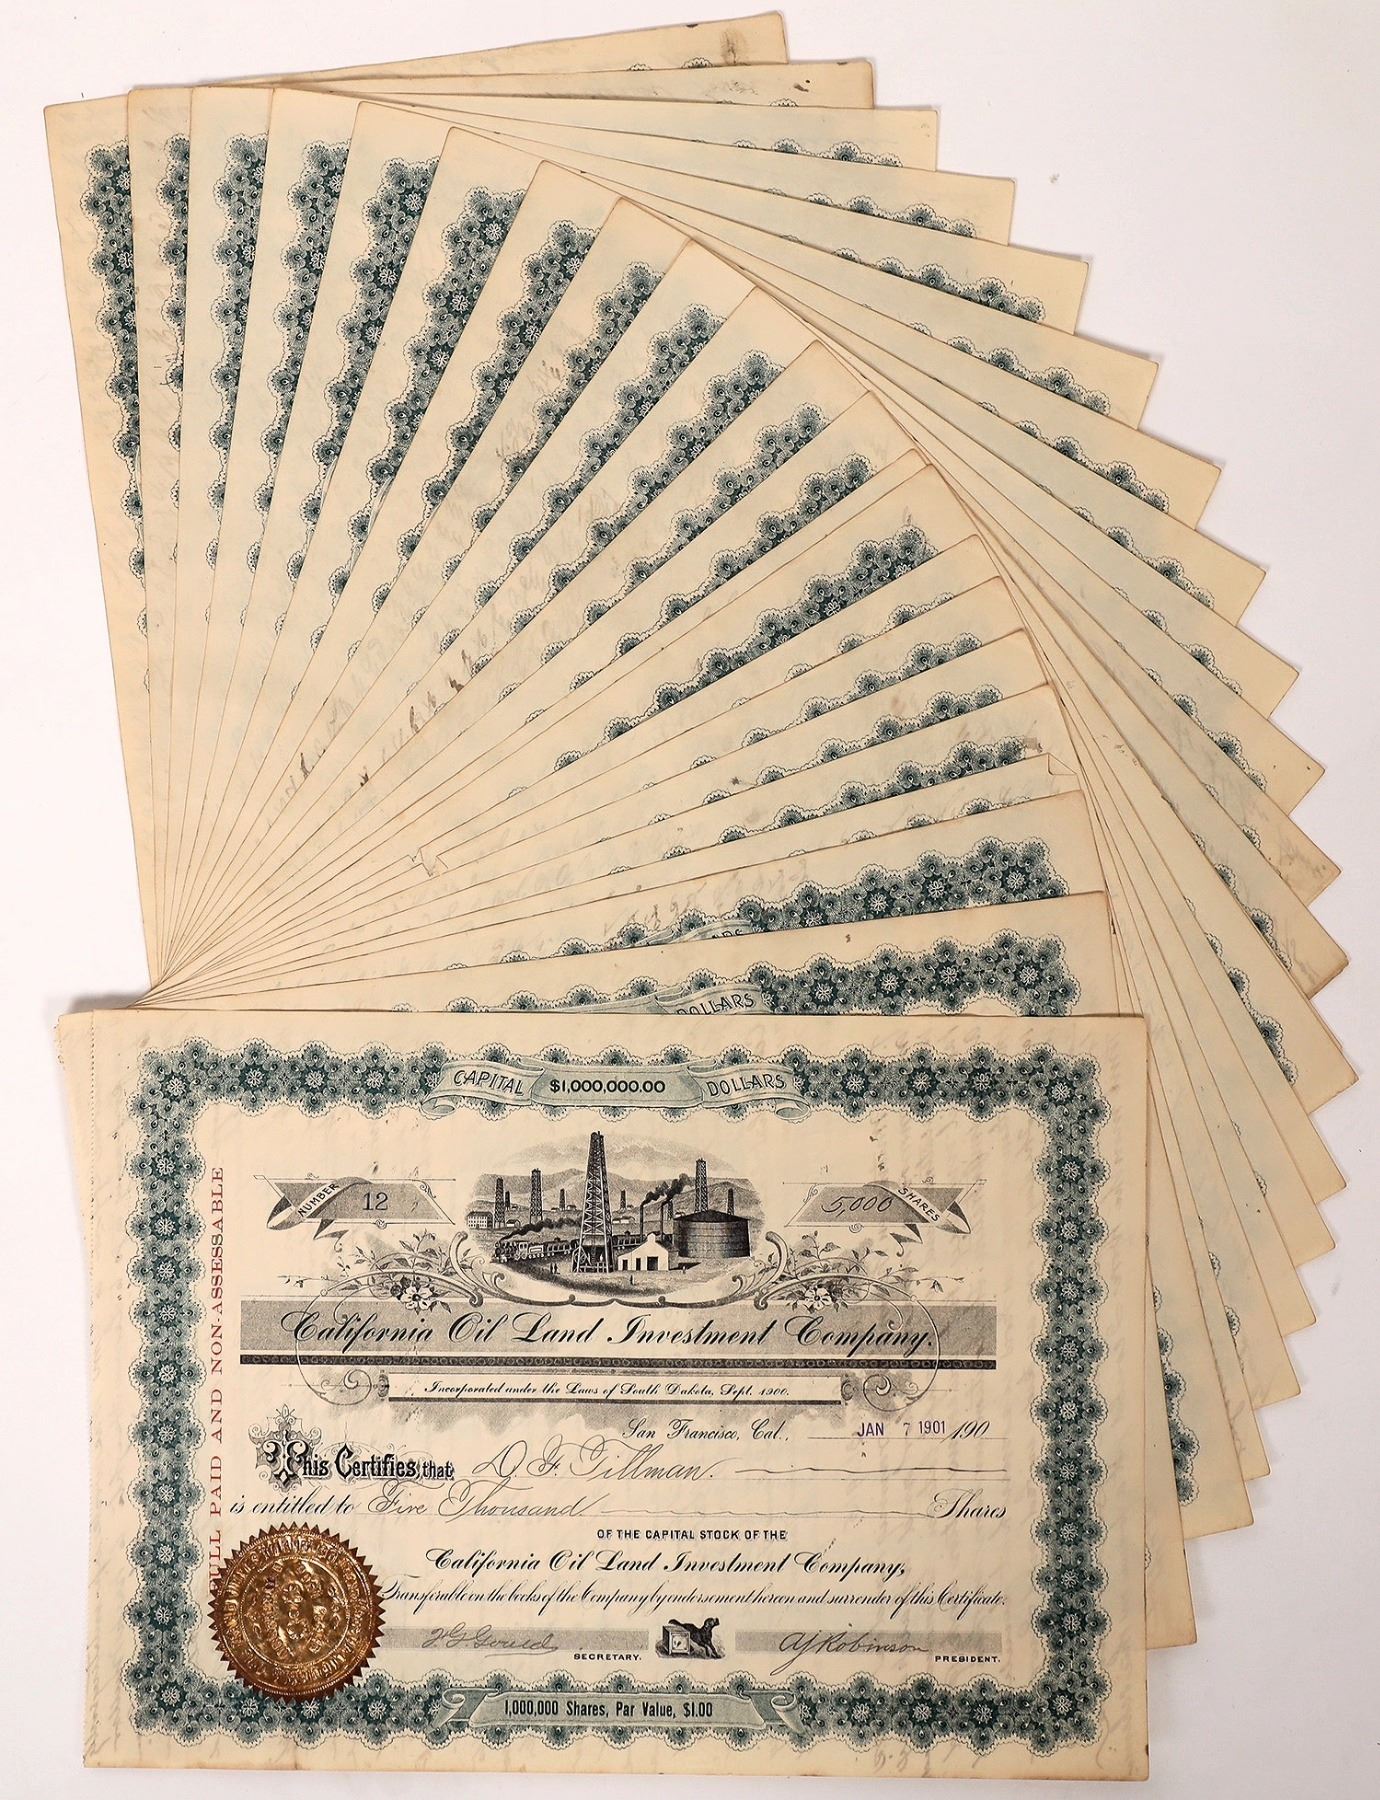 DOLLARS
CAPITAL $1,000,000.00 DOLLARS
NUMBER 12
5,000 SHARES
FULL PAID AND NON-ASSESSABLE
California Oil Land Investment Company.
Incorporated under the Laws of South Dakota, Sept. 1900.
San Francisco, Cal., JAN 7 1901 190
This Certifies that D. F. Tillman.
is entitled to Five Thousand Shares
OF THE CAPITAL STOCK OF THE
California Oil Land Investment Company,
Transferable on the books of the Company by endorsement hereon and surrender of this Certificate.
SECRETARY. A J Robinson PRESIDENT.
1,000,000 Shares, Par Value, $1.00